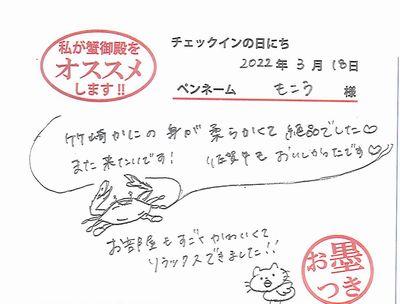 私が蟹御殿を
オススメ
します!!
チェックインの日にち
2022年 3月 18日
ペンネーム もこう 様
竹崎かにの身が柔らかくて絶品でした♡
また来たいです! 佐賀牛もおいしかったです♡
お部屋もすごくかわいくて
リラックスできました!!
お墨
つき